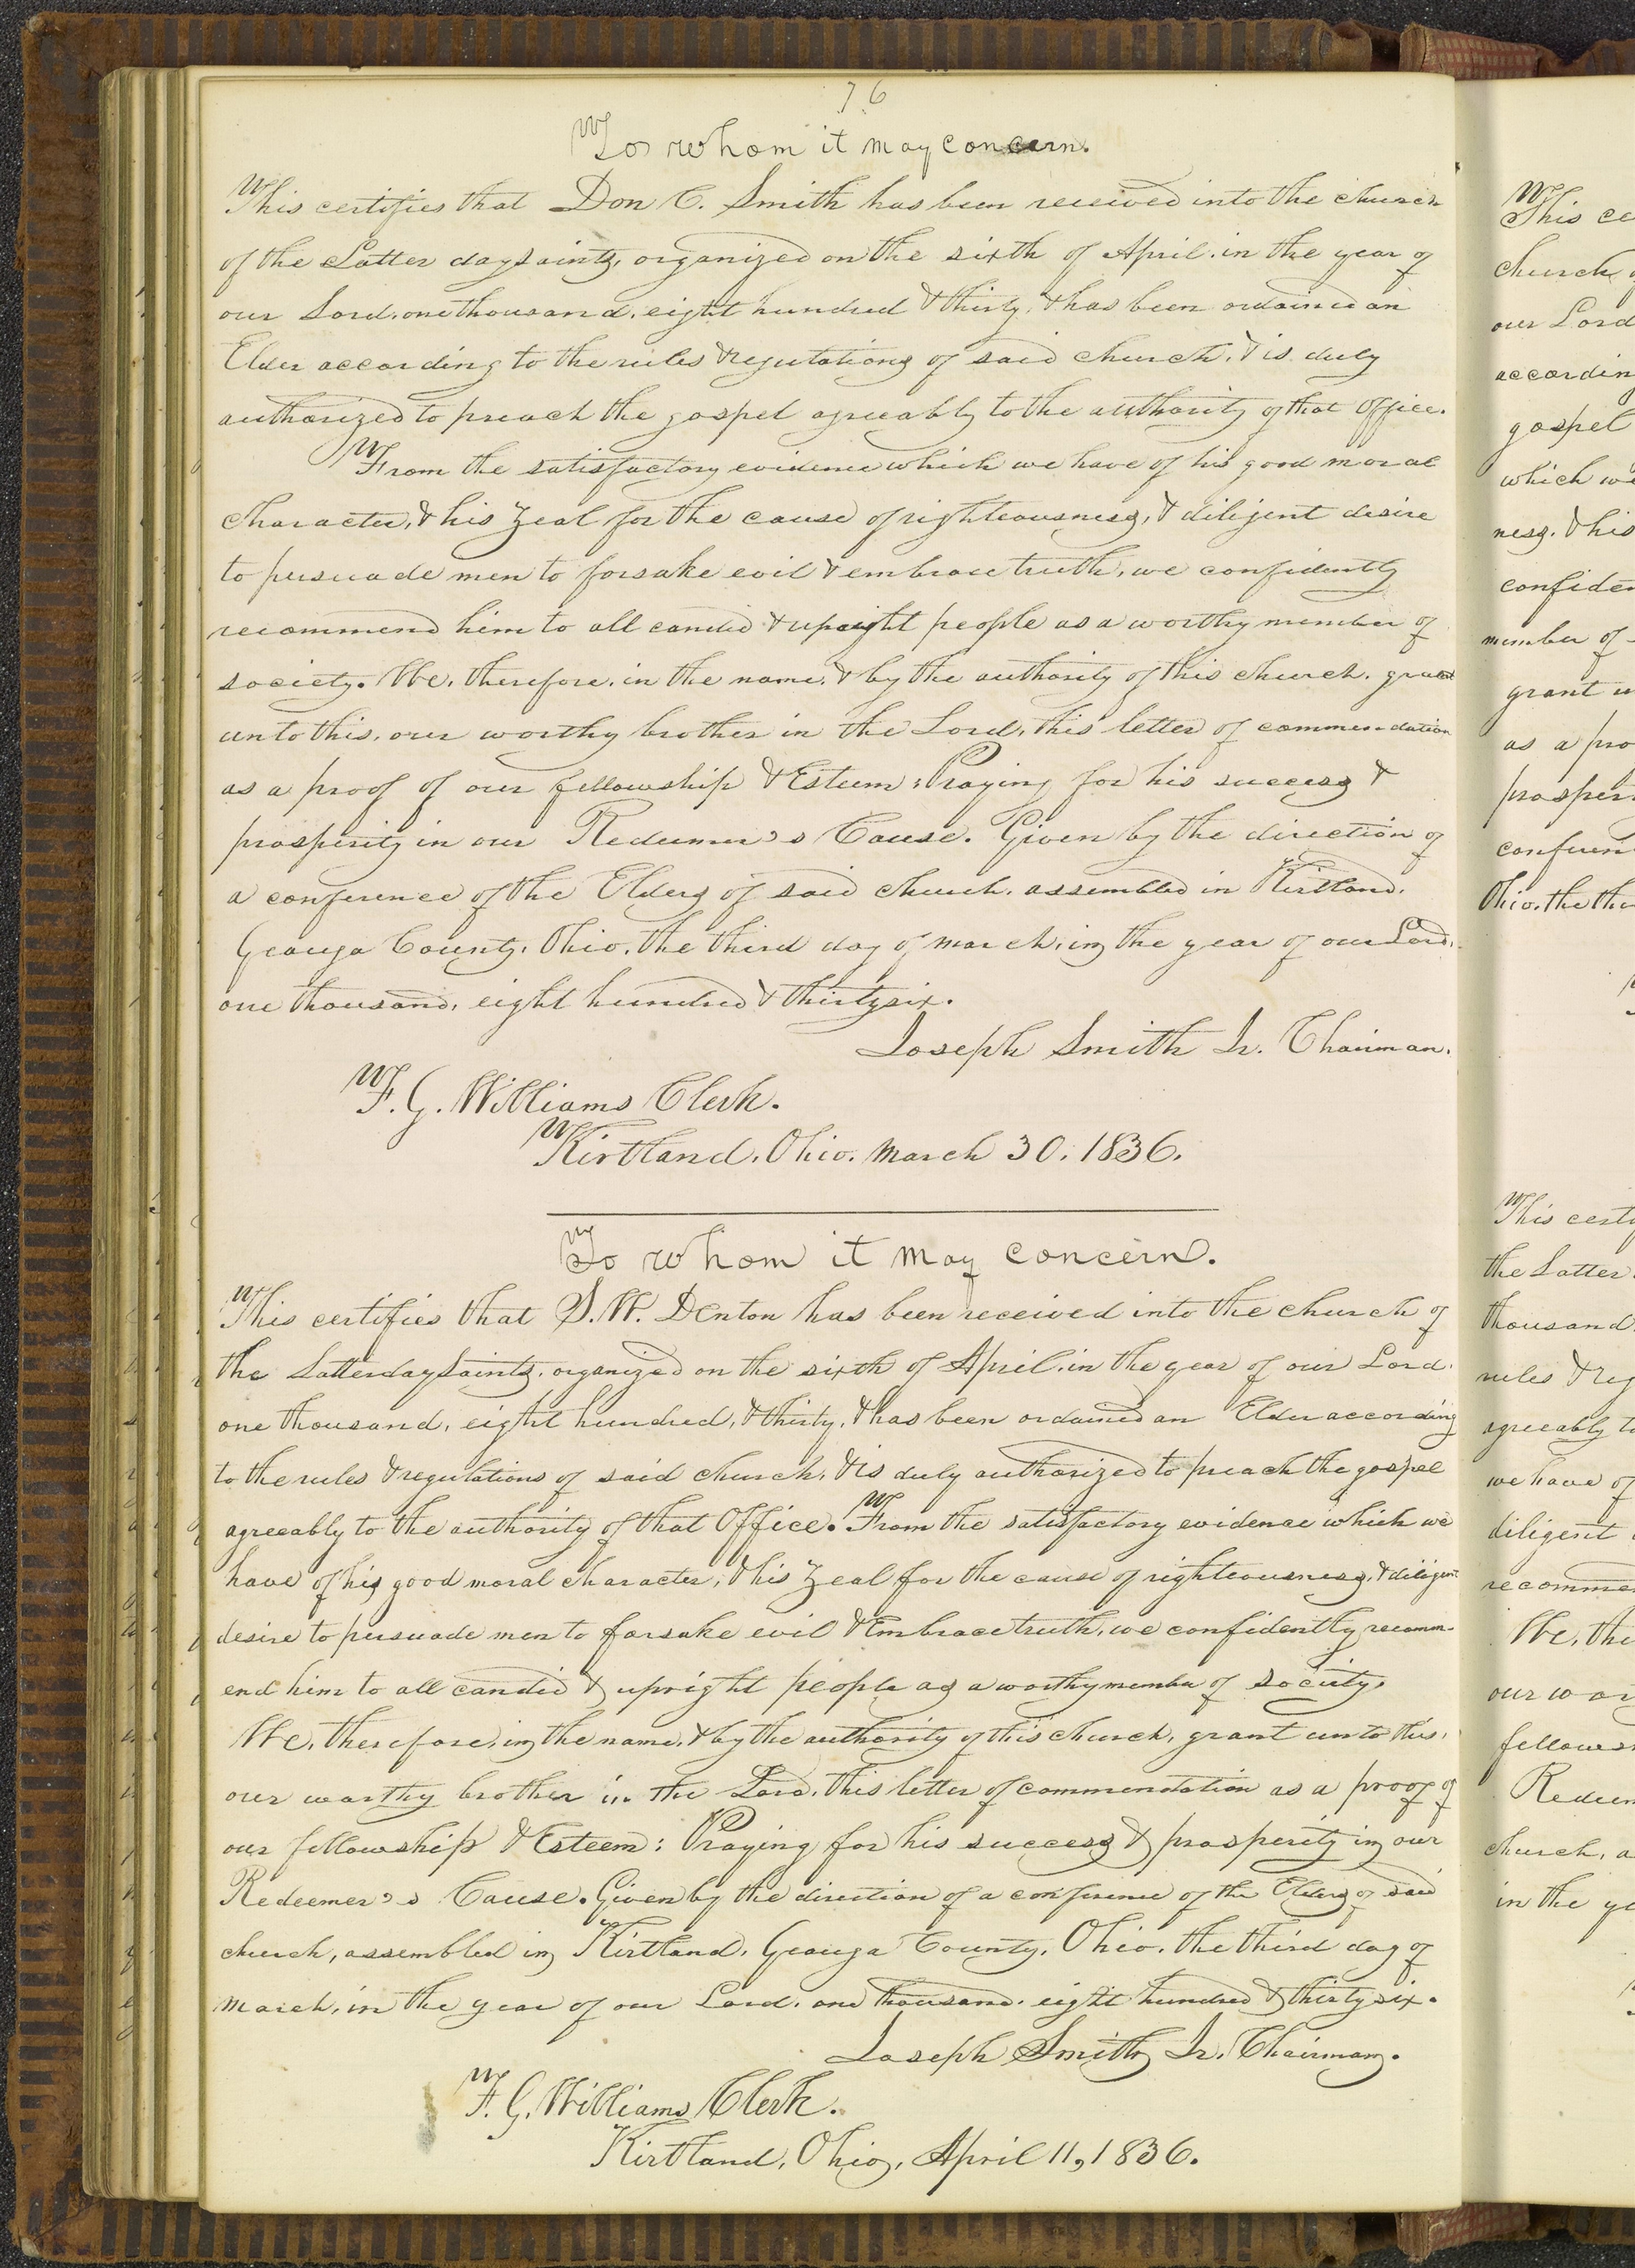 76
To whom it may concern.
This certifies that Don C. Smith has been received into the church
of the Latter day Saints, organized on the sixth of April, in the year of
our Lord, one thousand, eight hundred & thirty, & has been ordained an
Elder according to the rules & regulations of said church, & is duly
authorized to preach the gospel agreeably to the authority of that Office.
From the satisfactory evidence which we have of his good moral
character, & his zeal for the cause of righteousness, & diligent desire
to persuade men to forsake evil & embrace truth, we confidently
recommend him to all candid & upright people as a worthy member of
society. We, therefore, in the name, & by the authority of this church, grant
unto this, our worthy brother in the Lord, this letter of commendation
as a proof of our fellowship & Esteem: Praying for his success &
prosperity in our Redeemer's Cause. Given by the direction of
a conference of the Elders of said church, assembled in Kirtland,
Geauga County, Ohio, the third day of march, in the year of our Lord,
one thousand, eight hundred & thirty six.
Joseph Smith Jr. Chairman.
F. G. Williams Clerk.
Kirtland, Ohio, March 30, 1836.
To whom it may concern.
This certifies that S. W. Denton has been received into the church of
the Latterday Saints, organized on the sixth of April, in the year of our Lord,
one thousand, eight hundred, & thirty, & has been ordained an Elder according
to the rules & regulations of said church, & is duly authorized to preach the gospel
agreeably to the authority of that Office. From the satisfactory evidence which we
have of his good moral character, & his zeal for the cause of righteousness, & diligent
desire to persuade men to forsake evil & Embrace truth, we confidently recomm-
end him to all candid & upright people as a worthy member of society.
We, therefore, in the name, & by the authority of this church, grant unto this,
our worthy brother in the Lord, this letter of commendation as a proof of
our fellowship & Esteem: Praying for his success & prosperity in our
Redeemer's Cause. Given by the direction of a conference of the Elders of said
church, assembled in Kirtland, Geauga County, Ohio, the third day of
march, in the year of our Lord, one thousand, eight hundred & thirty six.
Joseph Smith Jr. Chairman.
F. G. Williams Clerk.
Kirtland, Ohio, April 11, 1836.
This ce
church
our Lord
accordin
gospel
which we
ness, & his
confiden
member of
grant u
as a pro
prosper
conferen
Ohio, the thi
This certi
the Latter
thousand
rules & reg
agreeably to
we have of
diligent
recomme
We, the
our wor
fellows
Redeem
church, a
in the ye